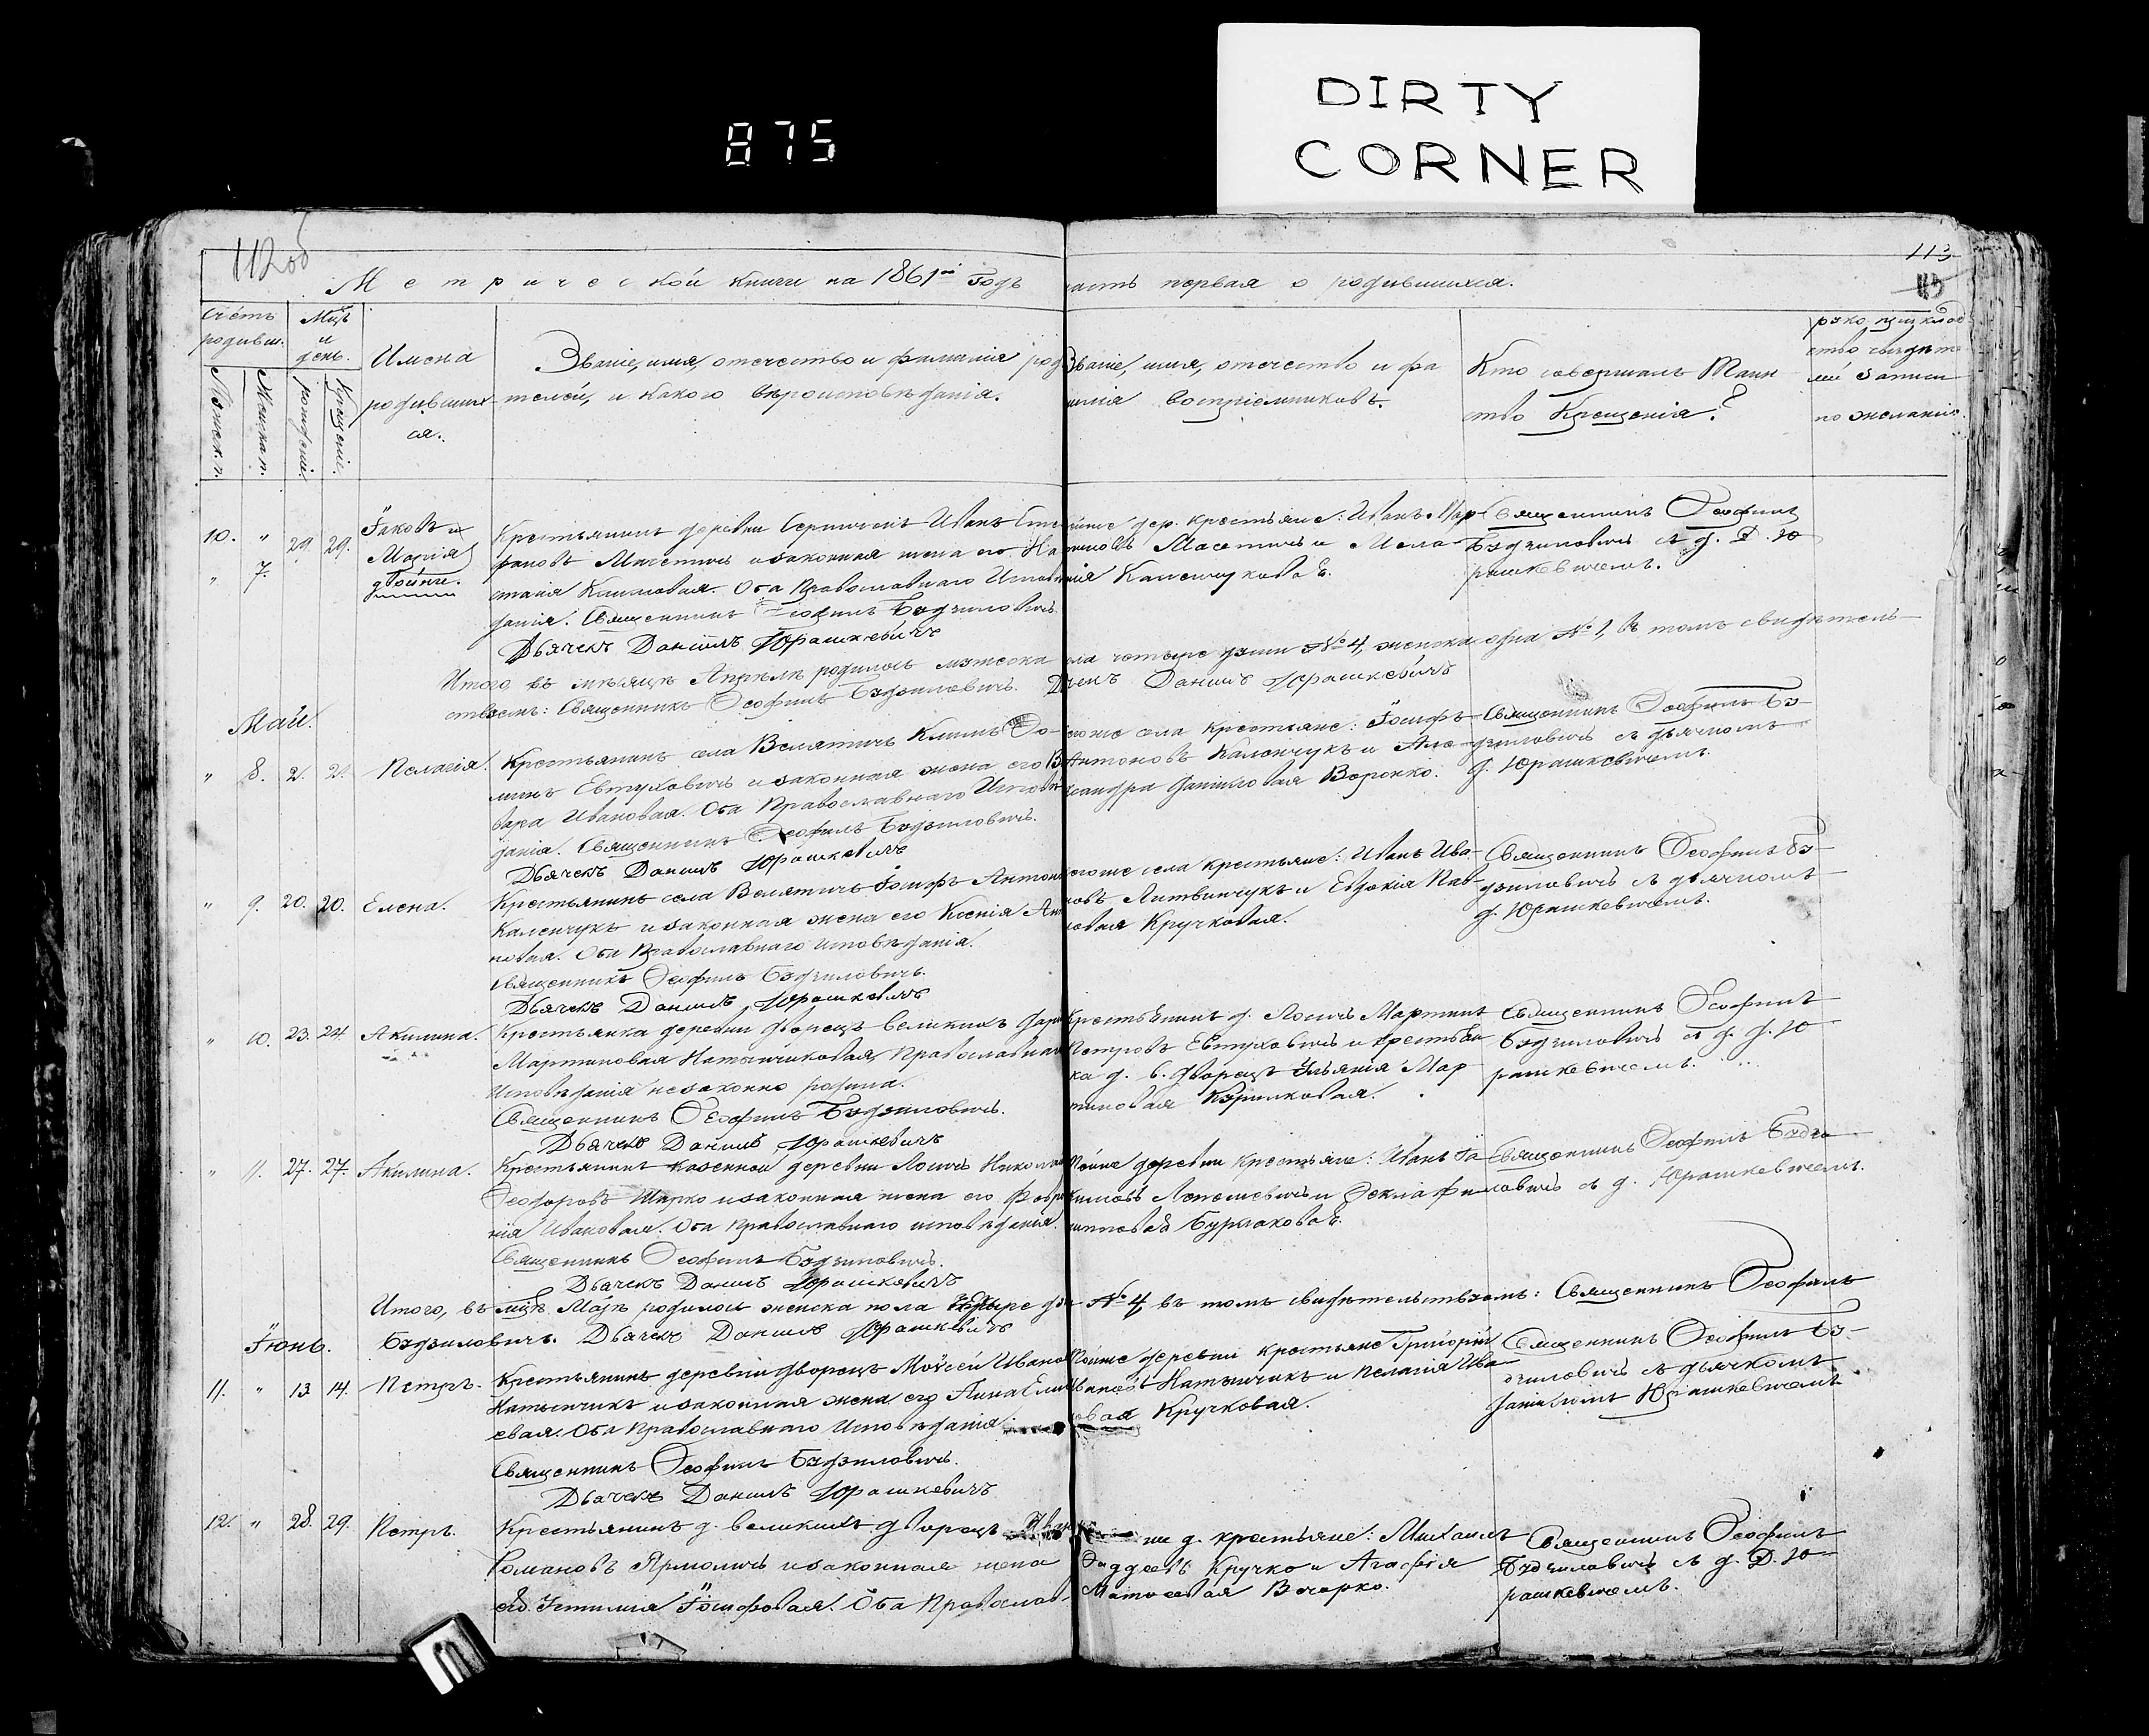 DIRTY
CORNER
875
112 об
113
Метрической книги на 1861й Годъ часть первая о родившихся.
Счетъ родивш.
Мужеск. п.
Женска п.
Мцъ и день.
рождени.
Крещение.
Имена
родивших-
ся.
Званіе, имя, отечество и фамилія род
телей, и какого вѣроисповѣданія.
Званіе, имя, отечество и фа
милія воспріемниковъ.
Кто совершалъ Таин
ство Крещенія?
по желанію.
10. " 29. 29.
" 7.
Іаковъ и
Марія
двойни.
Крестьянинъ деревни Иванъ Сте
фановъ Масетичъ и законная жена его На
сталія Климовая. Оба Православнаго Исповѣ
данія. Священникъ Ѳеофилъ Будзиловичъ
Дьячекъ Даніилъ Юрашкевичъ
дер. крестьяне: Иванъ Мар-
тиновъ Масетичъ и Мела-
нія Каленчуковаѣ.
Священникъ Ѳеофилъ
Будзиловичъ съ д. Д. Ю-
рашкевичемъ.
Итого въ мѣсяцѣ Апрѣлѣ родилось мужеска пола четыре души №4, женска одна №1, въ томъ свидѣтель-
ствуемъ: Священникъ Ѳеофилъ Будзиловичъ. Дьячекъ Даніилъ Юрашкевичъ
Май.
" 8. 2. 2. Пелагія.
Крестьянинъ села Велятичъ Климъ До-
минъ Евтуховичъ и законная жена его Вар
вара Ивановая. Оба Православнаго Исповѣ
данія. Священникъ Ѳеофилъ Будзиловичъ.
Дьячекъ Даніилъ Юрашкевичъ
тогоже села крестьяне: Іосифъ
Антоновъ Каленчукъ и Але-
ксандра Даниловая Воронко.
Священникъ Ѳеофилъ Бу-
дзиловичъ съ дьячкомъ
Д. Юрашкевичемъ.
" 9. 20. 20. Елена.
Крестьянинъ села Велятичъ Іосифъ Антоно
Каленчукъ и законная жена его Ксенія Ан
новая. Оба Православнаго исповѣданія.
Священникъ Ѳеофилъ Будзиловичъ.
Дьячекъ Даніилъ Юрашкевичъ
тогоже села крестьяне: Иванъ Ива-
новъ Литвинчукъ и Евдокія Пав-
ловая Кручковая.
Священникъ Ѳеофилъ Бу-
дзиловичъ съ дьячкомъ
Д. Юрашкевичемъ.
" 10. 23. 24. Акилина.
Крестьянка деревни Дворецъ великихъ
Мартиновая Натынчиковая, Православнаго
Исповѣданія незаконно родила.
Священникъ Ѳеофилъ Будзиловичъ.
Дьячекъ Даніилъ Юрашкевичъ
Крестьянинъ д. Лосичъ Мартинъ
Петровъ Евтуховичъ и крестьян
ка д. в. Дворецъ Ульянія Мар
тиновая Курилковая.
Священникъ Ѳеофилъ
Будзиловичъ съ д. Д. Ю
рашкевичемъ.
" 11. 27. 27. Акилина.
Крестьянинъ казенной деревни Лосичъ Николай
Ѳеодоровъ Шпарко и законная жена его Февро
нія Ивановая. Оба православнаго исповѣданія.
Священникъ Ѳеофилъ Будзиловичъ.
Дьячекъ Даніилъ Юрашкевичъ
Тойже деревни крестьяне: Иванъ Іа
кимовъ Лопошевичъ и Ѳекла Фи
липповая Бурлаковаѣ.
Священникъ Ѳеофилъ Будзи
ловичъ съ д. Юрашкевичемъ.
Итого, въ мцѣ Маѣ родилось женска пола четыре душ №4, въ томъ свидѣтельствуемъ: Священникъ Ѳеофилъ
Будзиловичъ. Дьячекъ Даніилъ Юрашкевичъ
Іюнь.
11. " 13. 14. Петръ.
Крестьянинъ деревни Дворецъ Моѵсей Ивано
Натынчикъ и законная жена его Анна Ели
евая. Оба Православнаго Исповѣданія.
Священникъ Ѳеофилъ Будзиловичъ.
Дьячекъ Даніилъ Юрашкевичъ
Тойже деревни крестьяне Григорій
Ивановъ Натынчикъ и Пелагія Ива
новая Кручковая.
Священникъ Ѳеофилъ Бу-
дзиловичъ съ дьячкомъ
Даніиломъ Юрашкевичемъ
12. " 28. 29. Петръ.
Крестьянинъ д. великихъ Дворецъ Иван
Романовъ Ярмоличъ и законная жена
его Іустинія Іосифовая. Оба Православ-
же д. крестьяне: Михаилъ
Ѳаддеевъ Кручко и Агафія
Матвеевая Вечорко.
Священникъ Ѳеофилъ
Будзиловичъ съ д. Д. Ю-
рашкевичемъ.